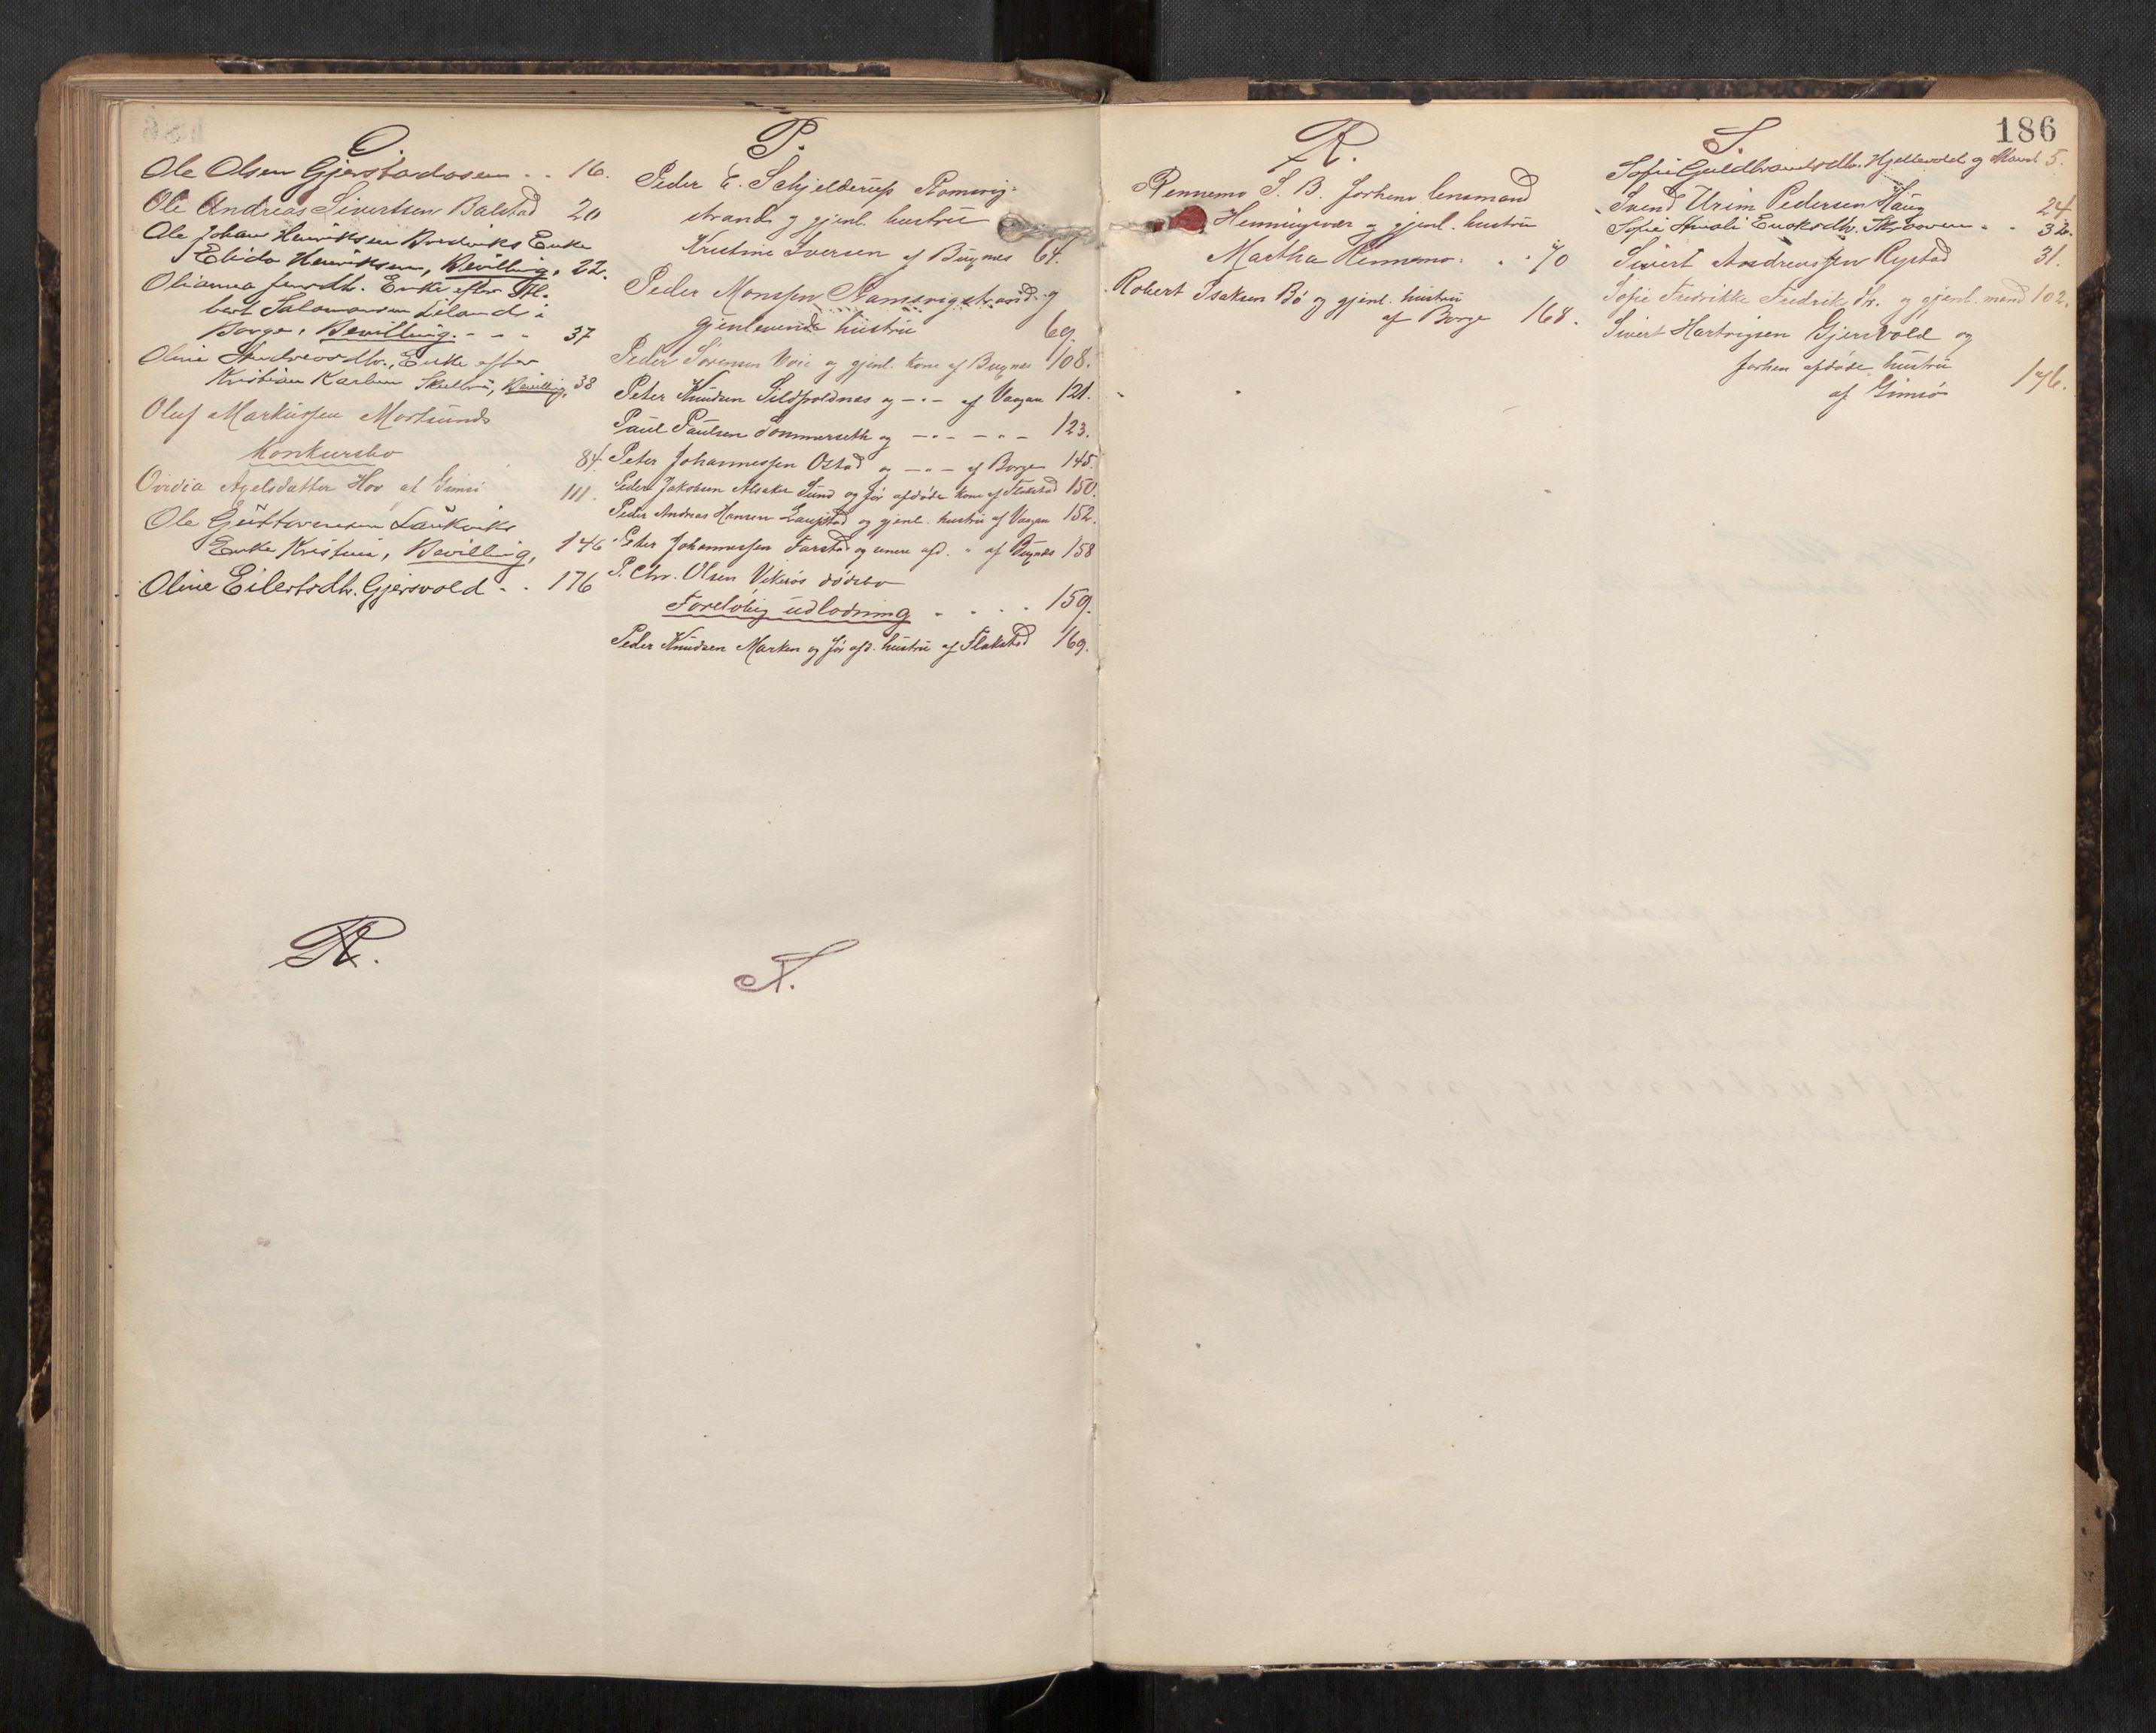 O.
Ole Olsen Gjerstadosen . . 16.
Ole Andreas Sivertsen Balstad 20
Ole Johan Henriksen Enke
Elida Henriksen, Bevilling, 22.
Olianna Jensdtr. Enke efter
bert Salamonsen Liland i
Borge, Bevilling. - - - 37
Oline Andreasdtr., Enke efter
Kristian Karlsen, Bevilling, 38
Oluf Markussen Mortsunds
Konkursbo 84.
Ovidia Axelsdatter Hov af Gimsø 111.
Ole Gustavensen Laukviks
Enke Kristine, Bevilling, 146
Oline Eilertsdtr. Gjersvold . . 176
R.
P.
Peder E. Schjelderup Ramsvig-
strand og gjenl. hustru
Kristine Iversen af Buxnes 64.
Peder Monssen Ramsvigstrand og
gjenlevende hustru 69.
Peder Sørensen og gjenl. kone af Buxnes 108.
Peter Knudsen Sildpoldnes og -"- af Vaagan 121.
Paul Paulsen Sommerseth og -"- -"- 123.
Peter Johannessen Ostad og -"- af Borge 145.
Peder Jakobsen Alsaker Sund og før afdøde kone af Flakstad 150.
Peder Andreas Hansen Laupstad og gjenl. hustru af Vaagan 152.
Peter Johannessen Farstad og afd. " af Buxnes 158
P. Chr. Olsen Vikerøs dødsbo
Foreløbig udlodning . . . . 159.
Peder Knudsen Marken og før afd. hustru af Flakstad 169.
T.
186
R.
Rennemo S. B. forhenv. lensmand
Henningsvær og gjenl. hustru
Martha Rennemo . . . 70
Robert Isaksen Bø og gjenl. hustru
af Borge 168.
S.
Sofie Guldbrandsdtr. Hjellevold og Mand 5.
Svend Urim Pedersen Haug 24.
Sofie Enoksdtr. Skroven . . 32.
Sivert Andreassen Rystad 31.
Sofie Fredrikke Fredriksdtr. og gjenl. mand 102.
Sivert Hartvigsen Gjersvold og
forhen afdøde hustru
af Gimsø 176.